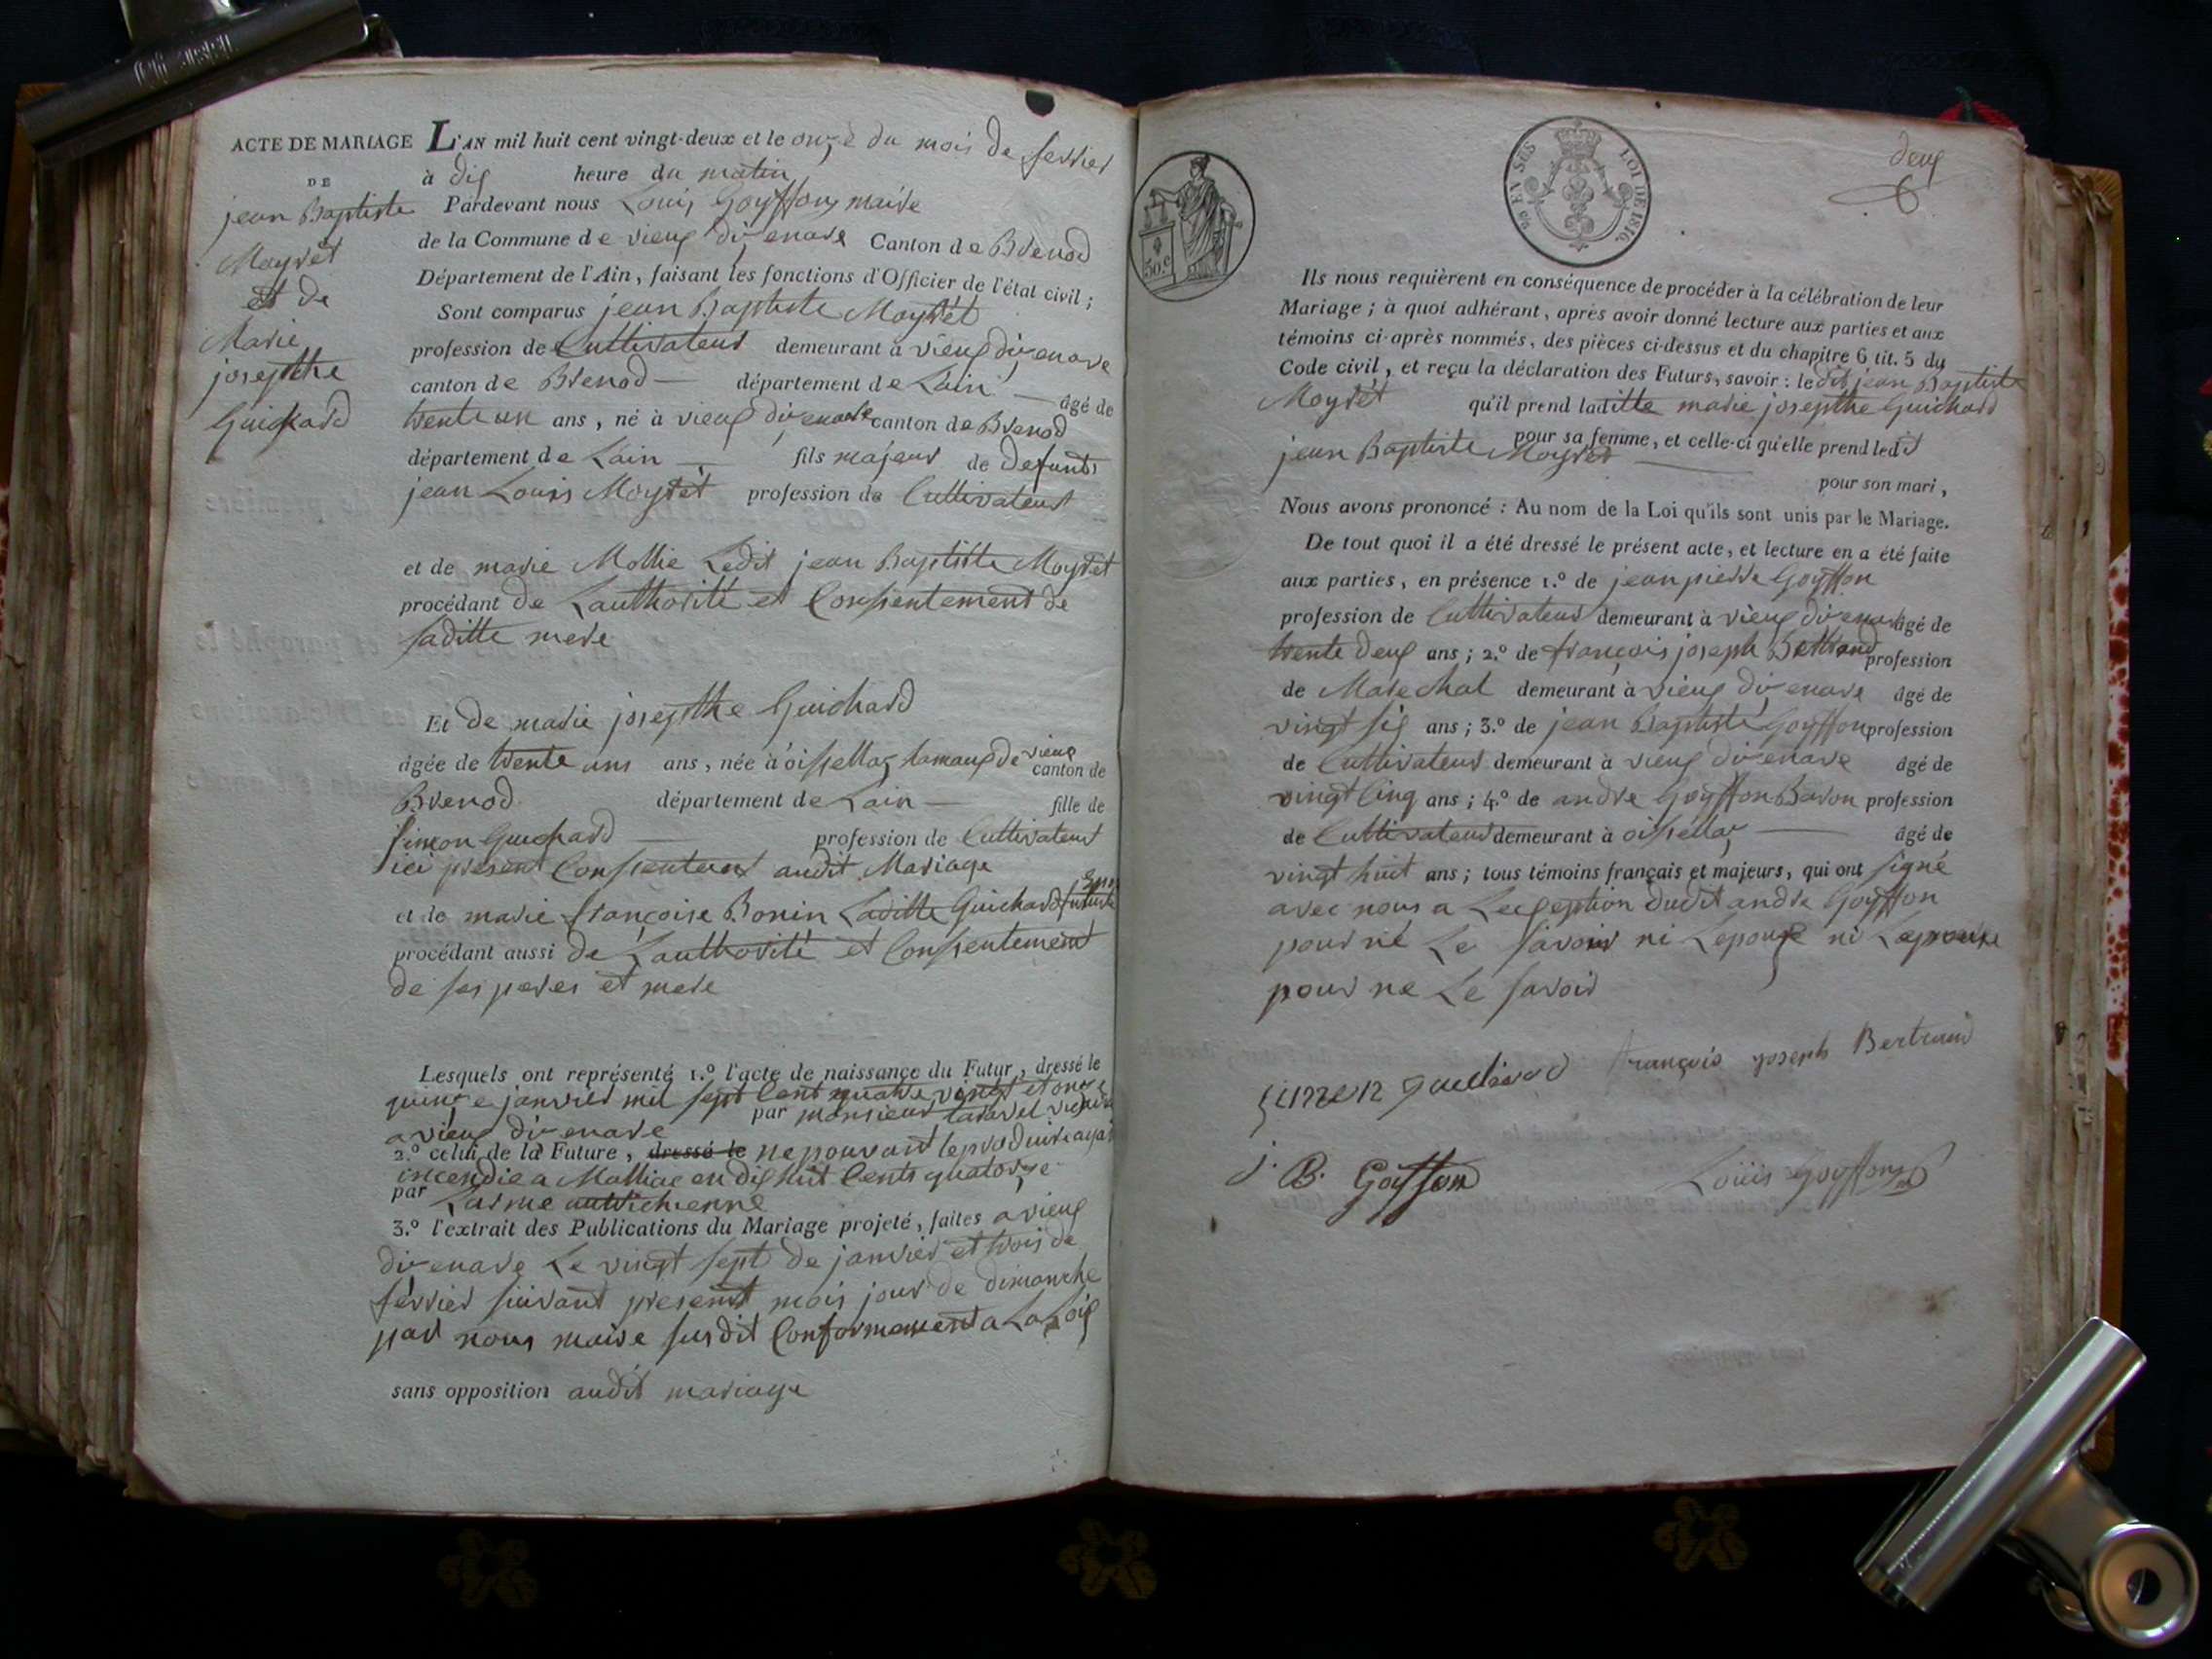 ACTE DE MARIAGE
DE
jean Baptiste
Moyret
et de
Marie
josepthe
Guichard
L'AN mil huit cent vingt-deux et le onze du mois de fevrier
à dix heure du matin
Pardevant nous Louis Goyffon maire
de la Commune de vieux dizenave Canton de Brenod
Département de l'Ain, faisant les fonctions d'Officier de l'état civil ;
Sont comparus jean Baptiste Moyret
profession de Cultivateur demeurant à vieux dizenave
canton de Brenod département de Lain âgé de
trente un ans, né à vieux dizenave canton de Brenod
département de Lain fils majeur de defunt
jean Louis Moyret profession de Cultivateur
et de marie Mollie Ledit jean Baptiste Moyret
procédant de Lauthorité et Consientement de
saditte mere
Et de marie josepthe Guichard
âgée de trente uns ans, née à oissellaz hamaux de vieux
canton de
Brenod département de Lain fille de
simon Guichard profession de Cultivateur
ici présent Consentant audit Mariage
et de marie françoise Bonin Laditte Guichard future
procédant aussi de Lauthorité et Consientement
de ses peres et mere
Lesquels ont représenté 1.º l'acte de naissance du Futur, dressé le
quinze janvier mil sept Cent quatre vingt et onze
a vieux dizenave par monsieur taravel vicaire
2.º celui de la Future, dressé le ne pouvant le produire ayant
incendie a Malliac en dix huit Cents quatorze
par Larme autrichienne
3.º l'extrait des Publications du Mariage projeté, faites a vieux
dizenave Le vingt sept de janvier et trois de
février suivant present mois jour de dimanche
par nous maire susdit Conformement a La Loix
sans opposition audit mariage
deux
EN SUS
LOI DE 1816.
50.c
Ils nous requièrent en conséquence de procéder à la célébration de leur
Mariage ; à quoi adhérant, après avoir donné lecture aux parties et aux
témoins ci-après nommés, des pièces ci-dessus et du chapitre 6 tit. 5 du
Code civil, et reçu la déclaration des Futurs, savoir : le dit jean Baptiste
Moyret qu'il prend laditte marie josepthe Guichard
pour sa femme, et celle-ci qu'elle prend ledit
jean Baptiste Moyret
pour son mari,
Nous avons prononcé : Au nom de la Loi qu'ils sont unis par le Mariage.
De tout quoi il a été dressé le présent acte, et lecture en a été faite
aux parties, en présence 1.º de jean pierre Goyffon
profession de Cultivateur demeurant à vieux dizenave âgé de
trente deux ans ; 2.º de françois joseph Bertrand profession
de Marechal demeurant à vieux dizenave âgé de
vingt six ans ; 3.º de jean Baptiste Goyffon profession
de Cultivateur demeurant à vieux dizenave âgé de
vingt Cinq ans ; 4.º de andre Goyffon Baron profession
de Cultivateur demeurant à oissellaz âgé de
vingt huit ans ; tous témoins français et majeurs, qui ont signé
avec nous a Lexception dudit andre Goyffon
pour ne Le savoir ni Lepoux ni Lepouse
pour ne Le savoir
simen guichard
françois joseph Bertrand
j. B. Goiffon
Louis Goyffon